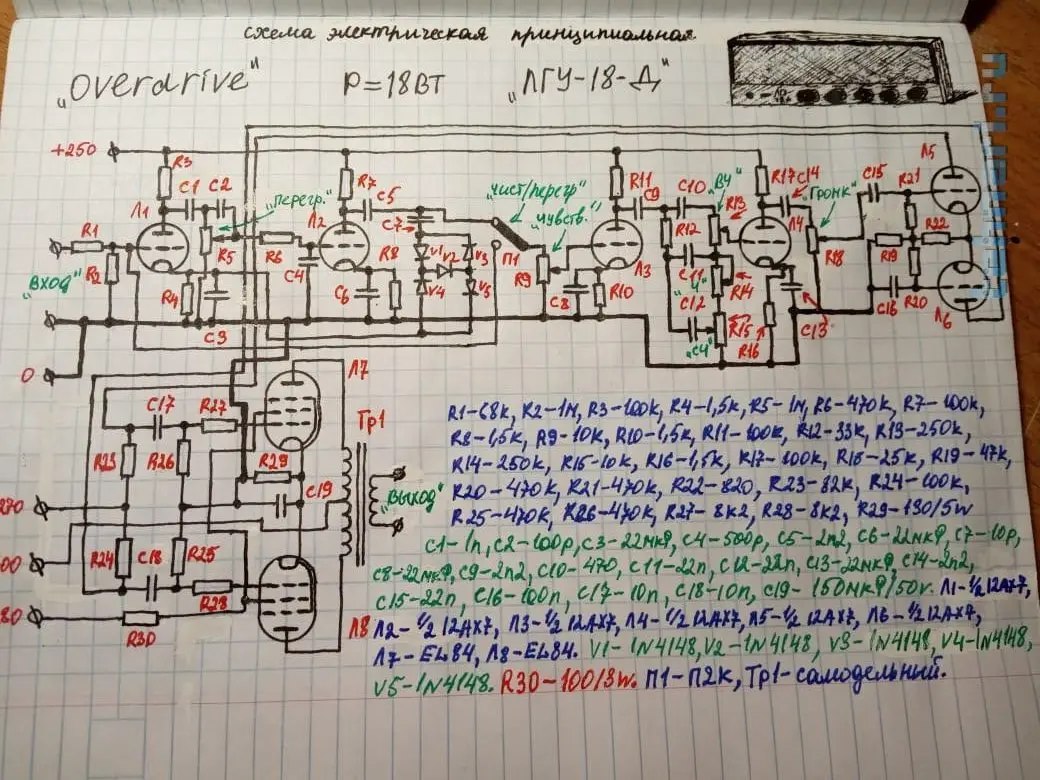 схема электрическая принципиальная
„Overdrive" P=18Вт „ЛГУ-18-Д"
+250 R3 C1 C2 R7 C5 „чист/перегр" R11 C9 C10 „ВЧ" R17 C14 Л5
Л1 „перегр." Л2 C7 „чувств." R13 Л4 „Громк" C15 R21
R1 R2 R5 R6 R8 V1 V2 V3 П1 R12 R22
„Вход" R4 C4 C6 V4 V5 R9 C8 R10 Л3 C11 „Ч" R14 R18 R19
C3 C12 R15 C13 C16 R20 Л6
0 „СЧ" R16
Л7
C17 R27 Тр1
R23 R26 R29
270 C19 „Выход"
00 R24 C18 R25
80 R28
R30 Л8
R1-68к, R2-1М, R3-100к, R4-1,5к, R5-1М, R6-470к, R7-100к,
R8-1,5к, R9-10к, R10-1,5к, R11-100к, R12-33к, R13-250к,
R14-250к, R15-10к, R16-1,5к, R17-100к, R18-25к, R19-47к,
R20-470к, R21-470к, R22-820, R23-82к, R24-100к,
R25-470к, R26-470к, R27-8к2, R28-8к2, R29-130/5w
C1-1п, C2-100р, C3-22мкф, C4-500р, C5-2п2, C6-22мкф, C7-10р,
C8-22мкф, C9-2п2, C10-470, C11-22п, C12-22п, C13-22мкф, C14-2п2,
C15-22п, C16-100п, C17-10п, C18-10п, C19-150мкф/50v. Л1-½12AX7,
Л2-½12AX7, Л3-½12AX7, Л4-½12AX7, Л5-½12AX7, Л6-½12AX7,
Л7-EL84, Л8-EL84. V1-1N4148, V2-1N4148, V3-1N4148, V4-1N4148,
V5-1N4148. R30-100/3w. П1-П2К, Тр1-самодельный.